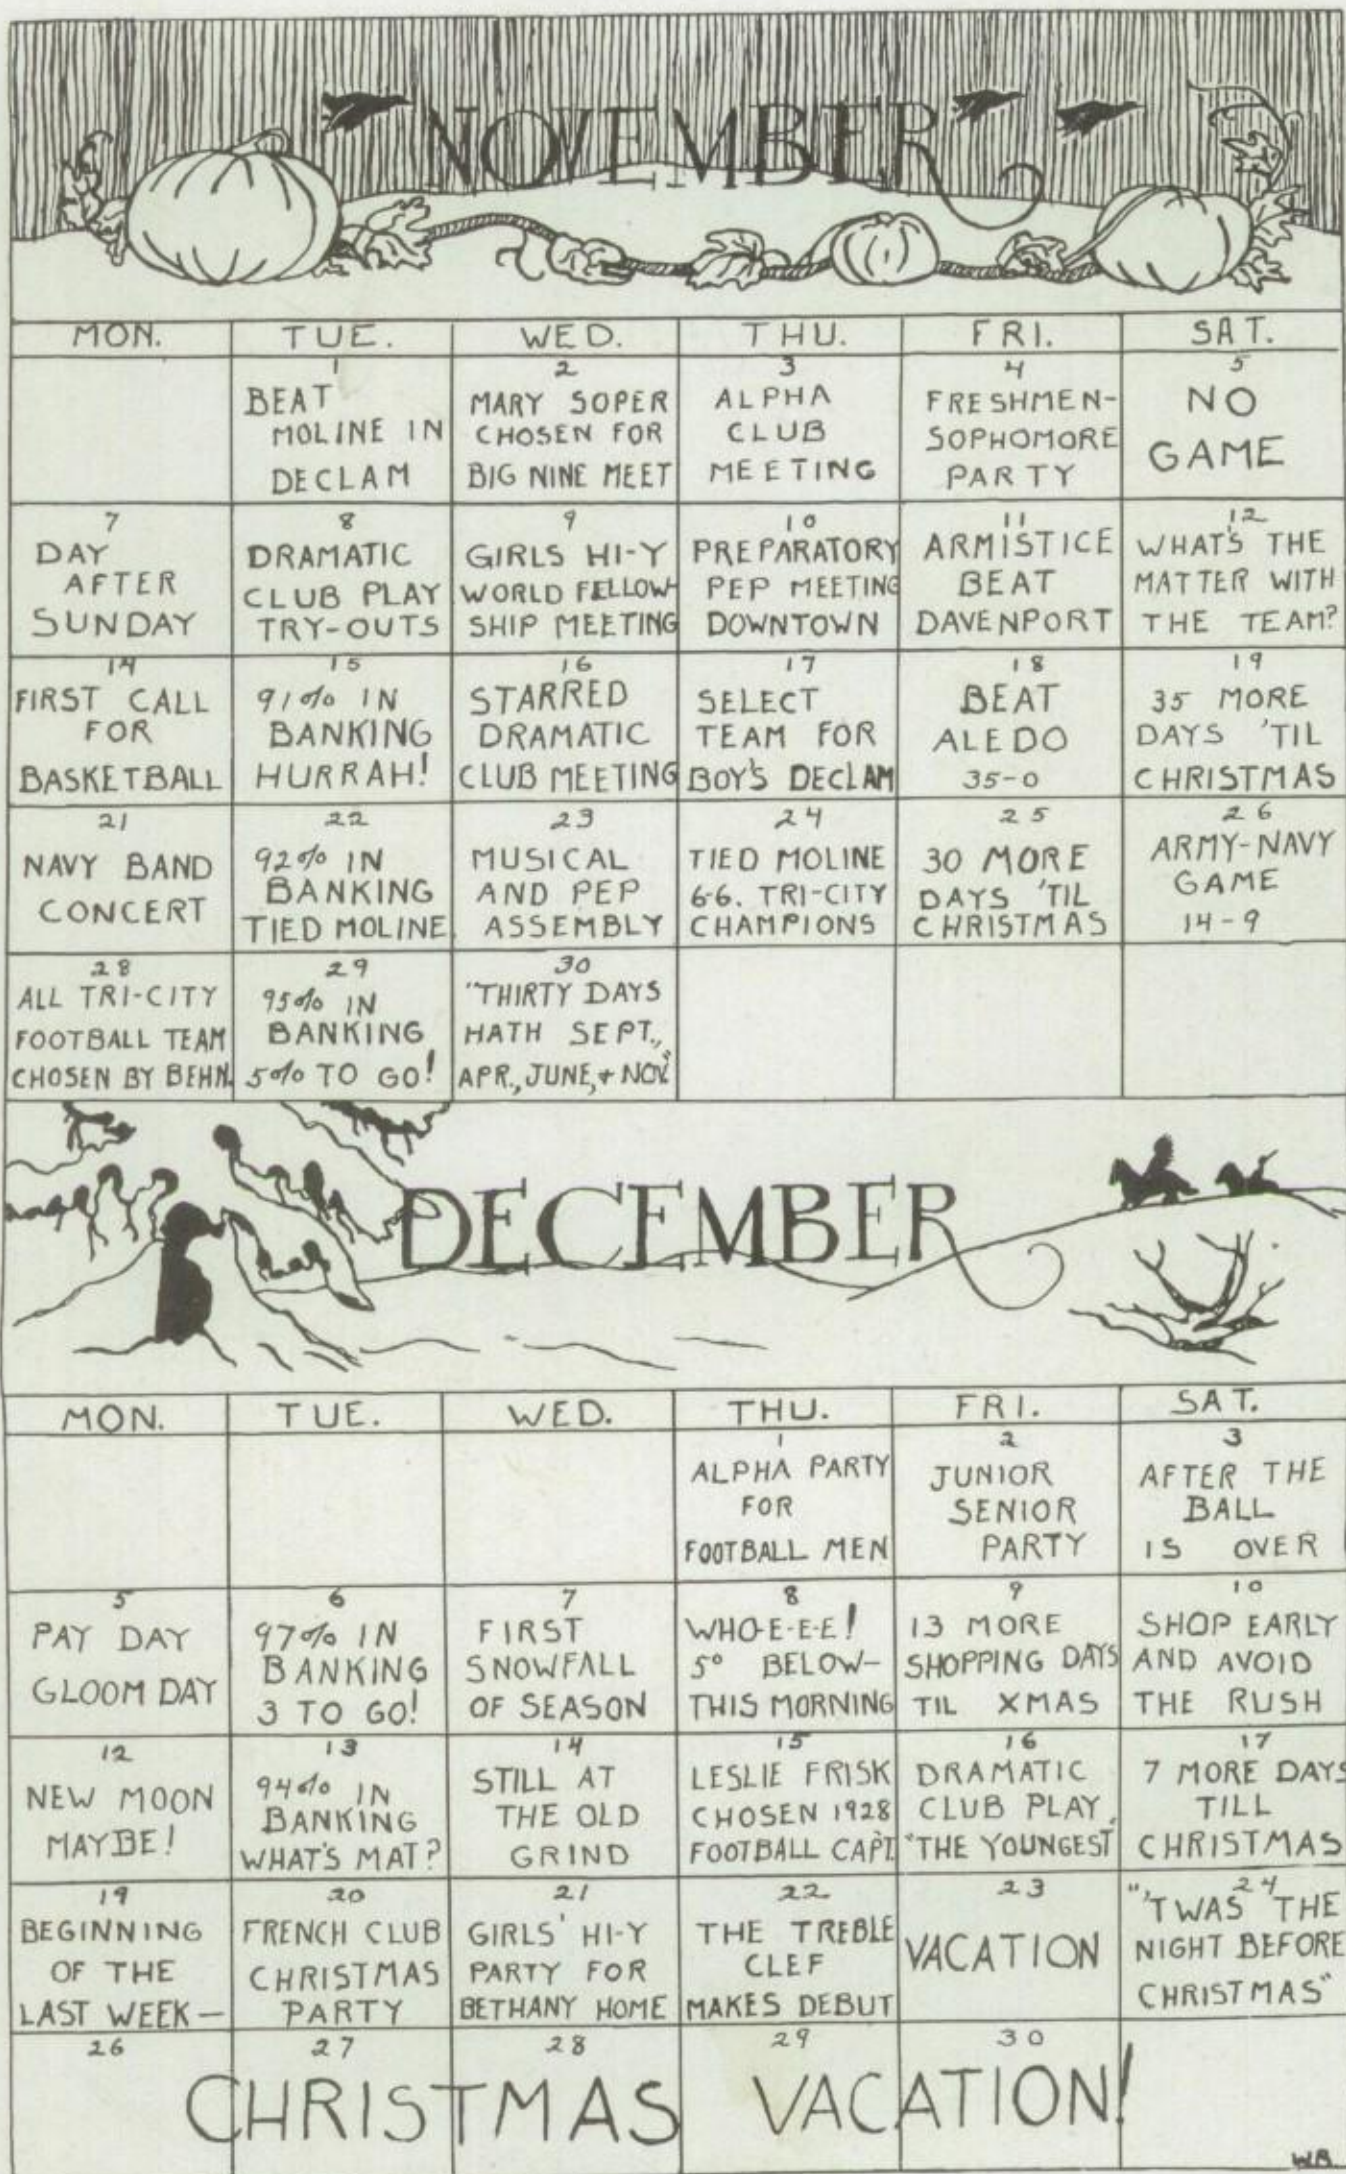 NOVEMBER
MON. TUE. WED. THU. FRI. SAT.
1
BEAT
MOLINE IN
DECLAM
2
MARY SOPER
CHOSEN FOR
BIG NINE MEET
3
ALPHA
CLUB
MEETING
4
FRESHMEN-
SOPHOMORE
PARTY
5
NO
GAME
7
DAY
AFTER
SUNDAY
8
DRAMATIC
CLUB PLAY
TRY-OUTS
9
GIRLS HI-Y
WORLD FELLOW-
SHIP MEETING
10
PREPARATORY
PEP MEETING
DOWNTOWN
11
ARMISTICE
BEAT
DAVENPORT
12
WHAT'S THE
MATTER WITH
THE TEAM?
14
FIRST CALL
FOR
BASKETBALL
15
91% IN
BANKING
HURRAH!
16
STARRED
DRAMATIC
CLUB MEETING
17
SELECT
TEAM FOR
BOY'S DECLAM
18
BEAT
ALEDO
35-0
19
35 MORE
DAYS 'TIL
CHRISTMAS
21
NAVY BAND
CONCERT
22
92% IN
BANKING
TIED MOLINE
23
MUSICAL
AND PEP
ASSEMBLY
24
TIED MOLINE
6-6. TRI-CITY
CHAMPIONS
25
30 MORE
DAYS 'TIL
CHRISTMAS
26
ARMY-NAVY
GAME
14-9
28
ALL TRI-CITY
FOOTBALL TEAM
CHOSEN BY BEHN.
29
95% IN
BANKING
5% TO GO!
30
"THIRTY DAYS
HATH SEPT.,
APR., JUNE, + NOV."
DECEMBER
MON. TUE. WED. THU. FRI. SAT.
1
ALPHA PARTY
FOR
FOOTBALL MEN
2
JUNIOR
SENIOR
PARTY
3
AFTER THE
BALL
IS OVER
5
PAY DAY
GLOOM DAY
6
97% IN
BANKING
3 TO GO!
7
FIRST
SNOWFALL
OF SEASON
8
WHO-E-E-E!
5° BELOW-
THIS MORNING
9
13 MORE
SHOPPING DAYS
TIL XMAS
10
SHOP EARLY
AND AVOID
THE RUSH
12
NEW MOON
MAYBE!
13
94% IN
BANKING
WHAT'S MAT?
14
STILL AT
THE OLD
GRIND
15
LESLIE FRISK
CHOSEN 1928
FOOTBALL CAPT.
16
DRAMATIC
CLUB PLAY,
"THE YOUNGEST"
17
7 MORE DAYS
TILL
CHRISTMAS
19
BEGINNING
OF THE
LAST WEEK—
20
FRENCH CLUB
CHRISTMAS
PARTY
21
GIRLS' HI-Y
PARTY FOR
BETHANY HOME
22
THE TREBLE
CLEF
MAKES DEBUT
23
VACATION
24
"'TWAS THE
NIGHT BEFORE
CHRISTMAS"
26 27 28 29 30
CHRISTMAS VACATION!
WB